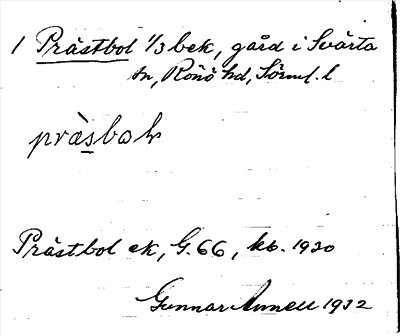 1 Prästbol 1/3 bek, gård i Svärta
sn, Rönö hd, Sörml. l
Prästbol ek, G. 66, kb. 1930
Gunnar Annell 1932